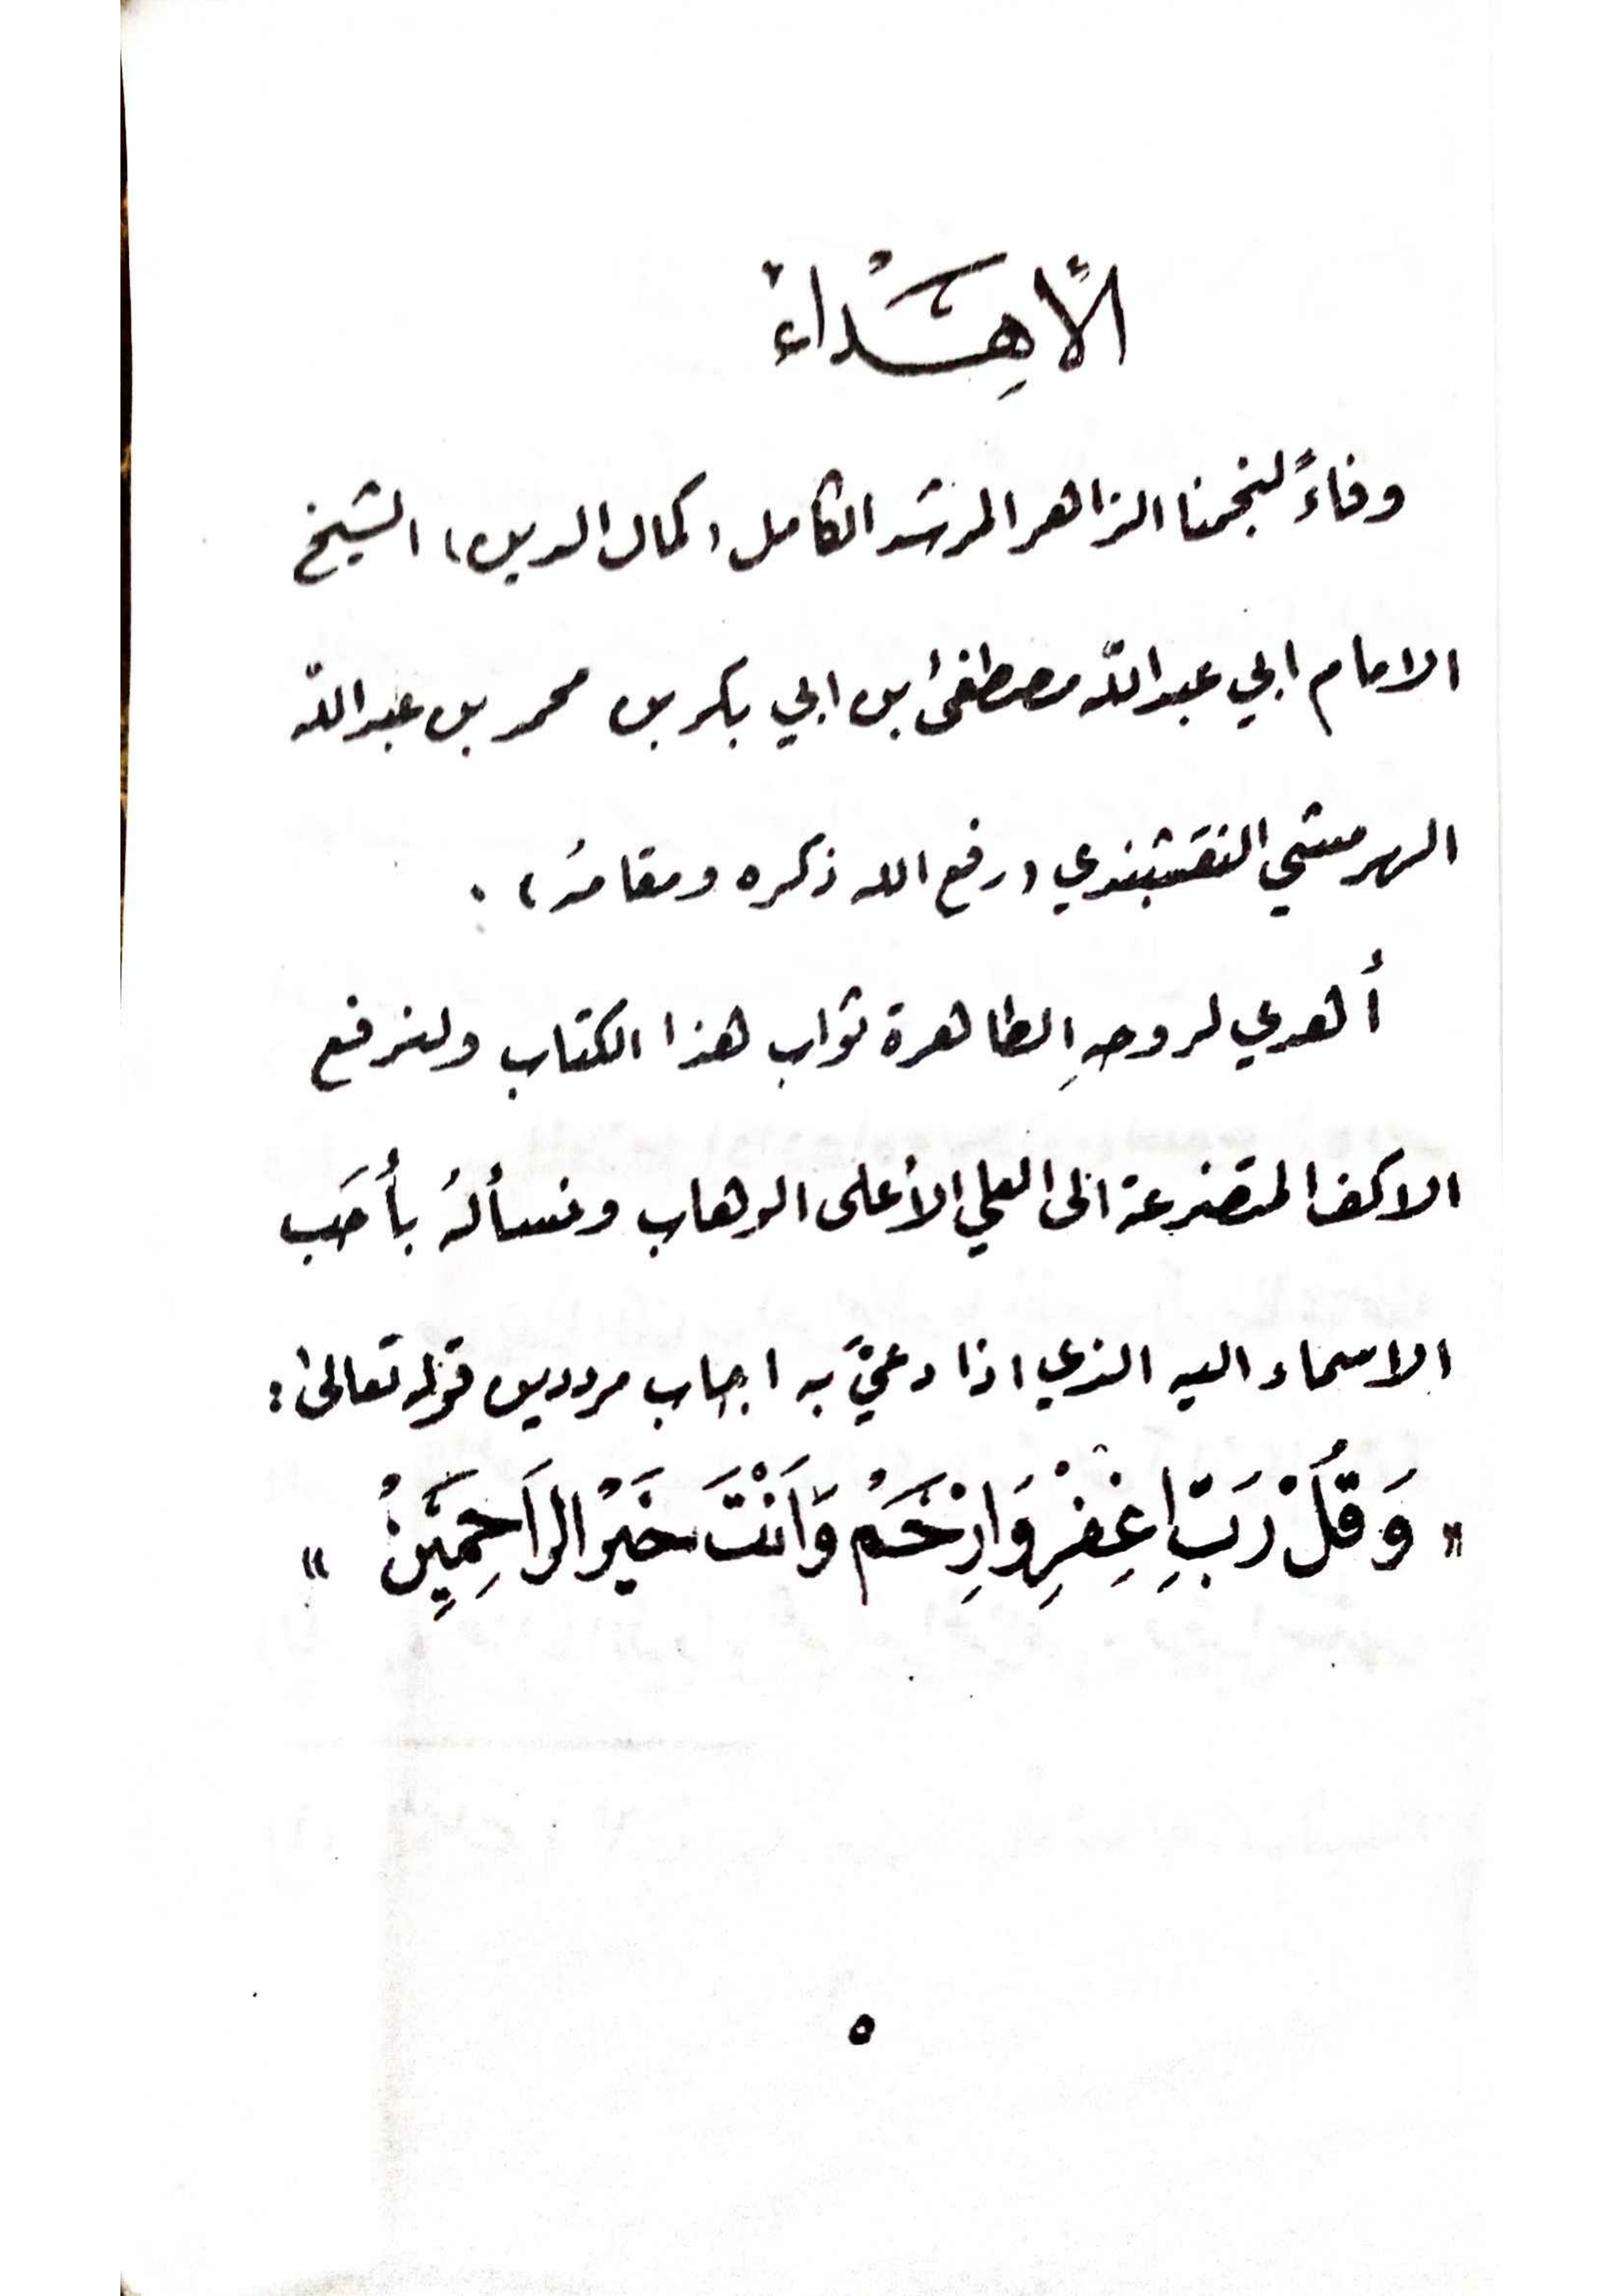 الأهِدَاءْ
وفاءً لنجمنا الزاهر المرشد الكامل (كمال الدين) الشيخ
الامام ابي عبدالله مصطفىٰ بن ابي بكر بن محمد بن عبدالله
الهرمشي النقشبندي (رفع الله ذكره ومقامهُ) .
أهدي لروحهِ الطاهرة ثواب هذا الكتاب ولنرفع
الاكف المتضرعة الى العلي الأعلى الوهاب ونسألهُ بأحَب
الاسماء اليه الذي اذا دعيَّ به اجاب مرددين قوله تعالىٰ:
" وَقُلْ رَبِّ اغِفِرْ وَارِحَمُ وَاَنْتَ خَيْرُ الرَاحِمِيَنُ "
٥